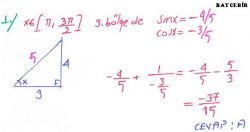 BATCEBİR
1/ x ∈ [π, 3π/2] 3. bölgede sinx = -4/5
cosx = -3/5
5 4
x 3
-4/5 + 1/(-3/5) = -4/5 - 5/3
= -37/15
CEVAP: A